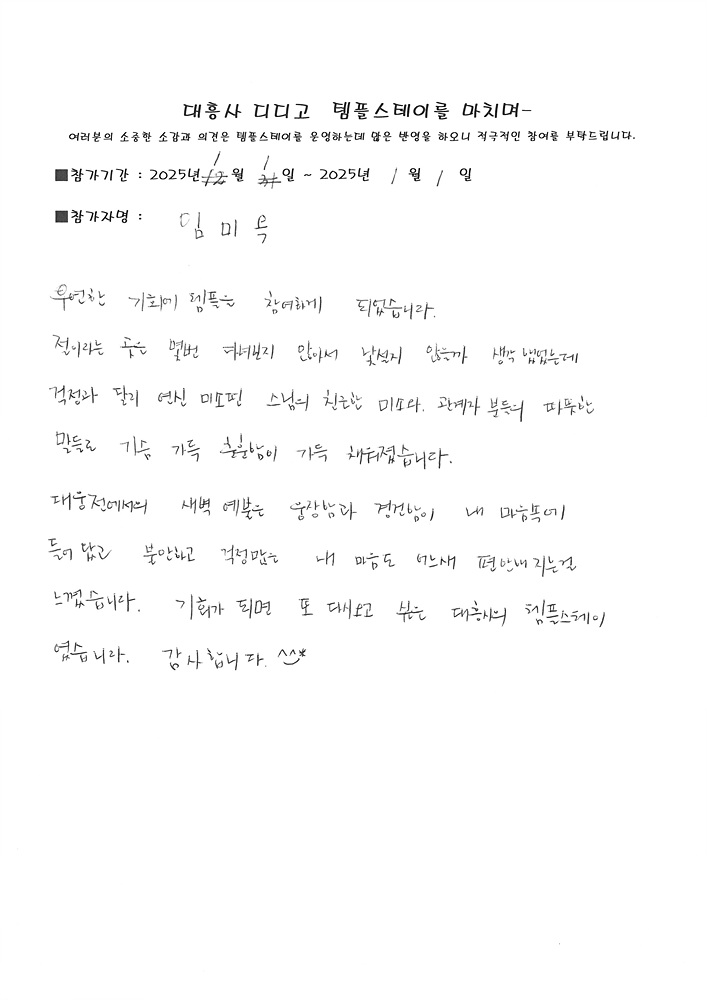 대흥사 디디고 템플스테이를 마치며-
여러분의 소중한 소감과 의견은 템플스테이를 운영하는데 많은 반영을 하오니 적극적인 참여를 부탁드립니다.
■참가기간 : 2025년 1월 1일 ~ 2025년 1월 1일
■참가자명 : 임미옥
우연한 기회에 템플은 참여하게 되었습니다.
절이라는 곳은 몇번 다녀보지 않아서 낯설지 않을까 생각 했었는데
걱정과 달리 연신 미소핀 스님의 친근한 미소와. 관계자 분들의 따뜻한
말들로 가슴 가득 충울함이 가득 채워졌습니다.
대웅전에서의 새벽 예불은 웅장함과 경건함이 내 마음속에
들어 왔고 불안하고 걱정많은 내 마음도 어느새 편안해 지는걸
느꼈습니다. 기회가 되면 또 다시오고 싶은 대흥사의 템플스테이
였습니다. 감사합니다. ^^*